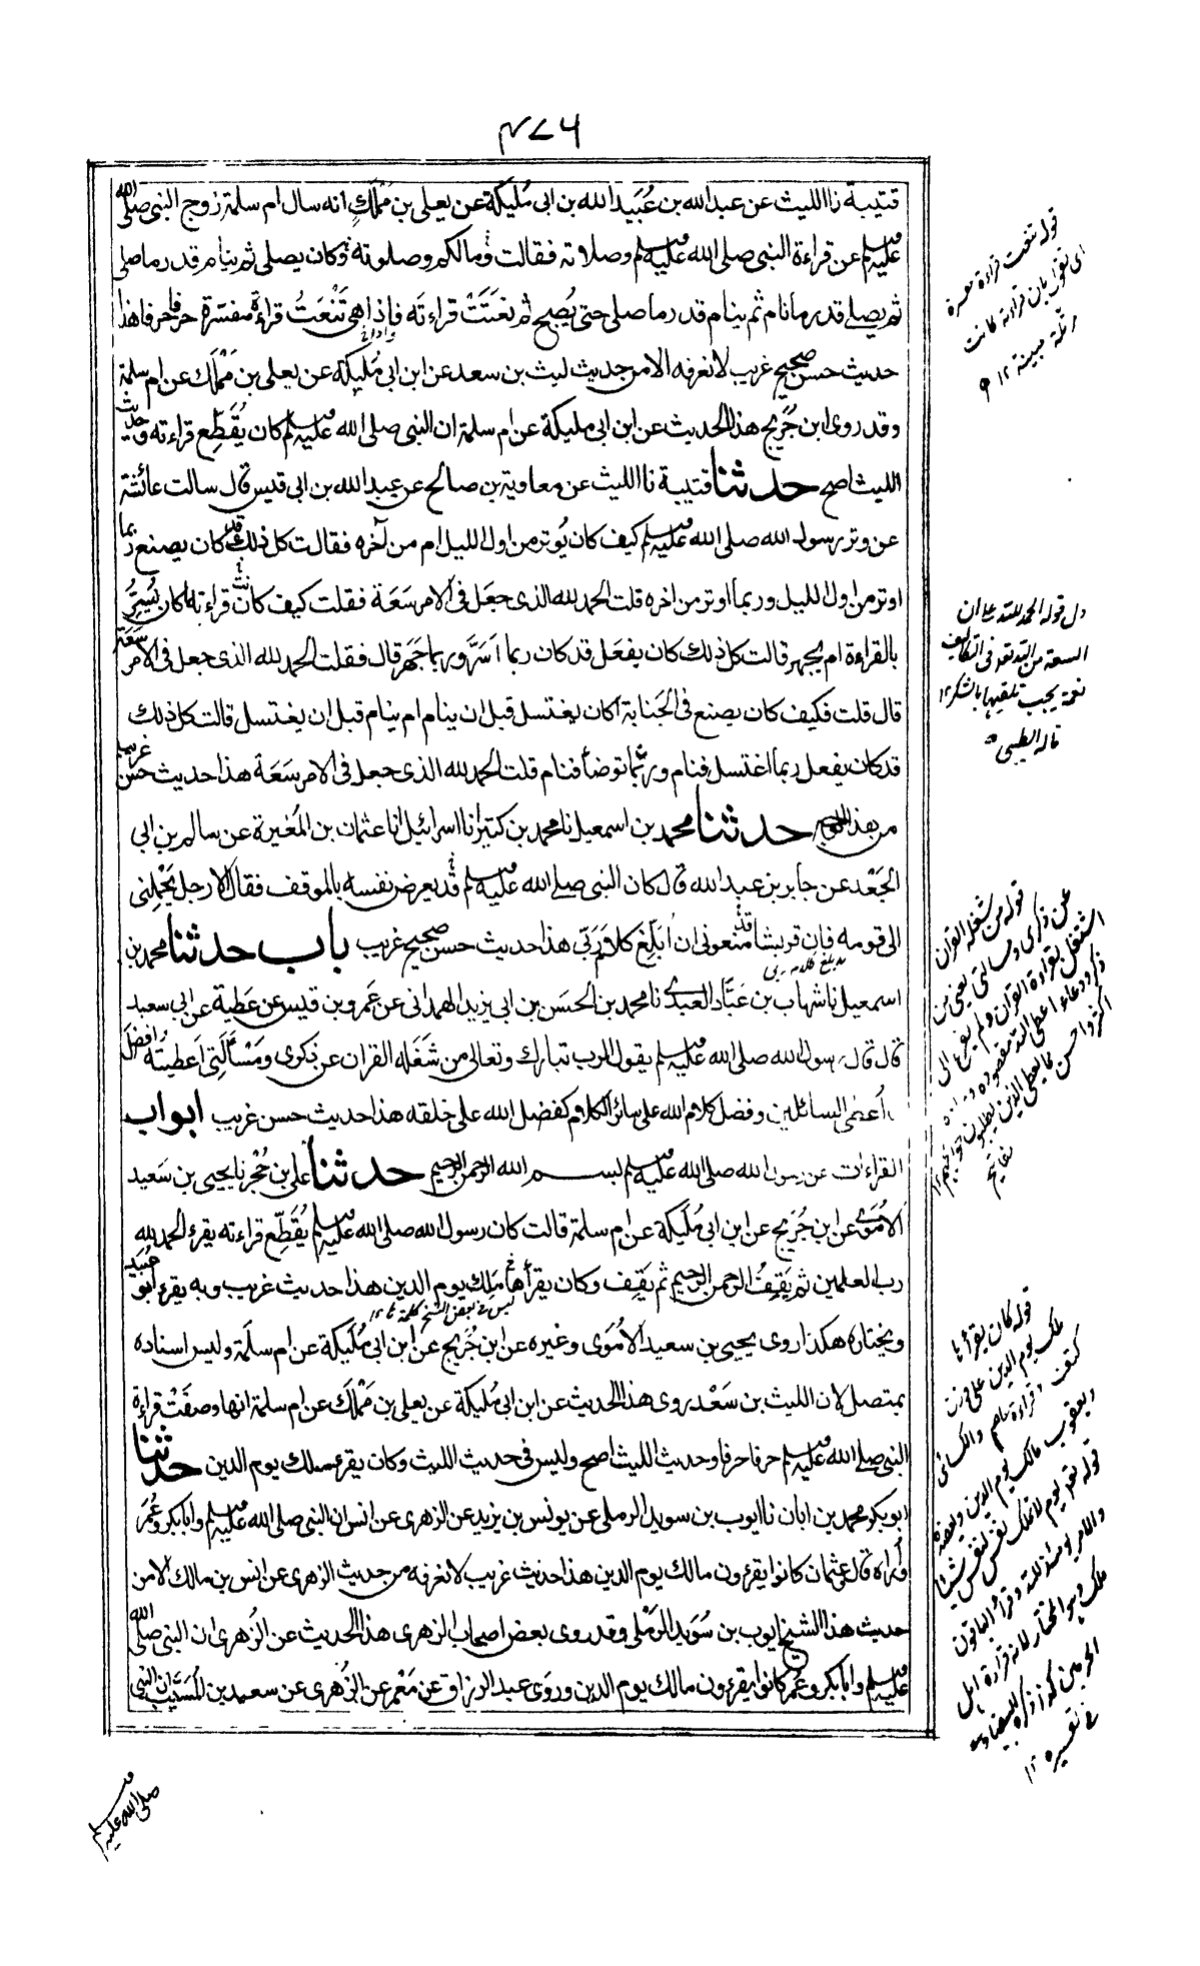 ٤٧٦
قتيبة نا الليث عن عبد الله بن عُبَيد الله بن ابى مُليكة عن يعلى بن مَمْلَكٍ انه سال ام سلمة زوج النبى صلى الله
عليه وسلم عن قراءة النبى صلى الله عليه وسلم وصلاته فقالت ومالكم وصلوته وكان يصلى ثم ينام قدر ما صلى
ثم يصلے قدر ما نام ثم ينام قدر ما صلى حتى يُصبح ثم نعَتَتْ قراءتَه فإذا هى تَنْعَتُ قراءةً مفسَّرة حرفا حرفا هذا
حديث حسن صحيح غريب لا نعرفه الا من حديث ليث بن سعد عن ابن ابى مُليكة عن يعلى بن مَمْلَك عن ام سلمة
وقد روى ابن جُرَيج هذا الحديث عن ابن ابى مليكة عن ام سلمة ان النبى صلى الله عليه وسلم كان يُقَطِّع قراءته وحديث
الليث اصح حدثنا قتيبة نا الليث عن معاوية بن صالح عن عبد الله بن ابى قيس قال سالت عائشة
عن وتر رسول الله صلى الله عليه وسلم كيف كان يُوتر من اول الليل ام من آخره فقالت كل ذلك قد كان يصنع ربما
اوتر من اول الليل وربما اوتر من اخره قلت الحمد لله الذى جعَل فى الامر سَعَة فقلت كيف كانت قراءته أكان يُسِرُّ
بالقراءة ام يجهر قالت كل ذلك كان يفعَل قد كان ربما اَسَرَّ وربما جَهَر قال فقلت الحمد لله الذى جعل فى الامر سَعَة
قال قلت فكيف كان يصنع فى الجَنابة أكان يغتسل قبل ان ينام ام ينام قبل ان يغتسل قالت كل ذلك
قد كان يفعل ربما اغتسل فنام وربَّما توضأ فنام قلت الحمد لله الذى جعل فى الامر سَعَة هذا حديث حسن غريب
من هذا الوجه حدثنا محمد بن اسمعيل نا محمد بن كثير انا اسرائيل انا عثمان بن المُغيرة عن سالم بن ابى
الجَعْد عن جابر بن عبد الله قال كان النبى صلے الله عليه وسلم قد يعرض نفسه بالموقف فقال الا رجل يَحْمِلنى
الى قومه فإن قريشا قد منعونى ان اُبَلِّغ كلامَ رَبّى هذا حديث حسن صحيح غريب باب حدثنا محمد بن
اسمعيل نا شهاب بن عَبَّاد العبدى نا محمد بن الحسَن بن ابى يزيد الهمدانى عن عَمرو بن قيس عن عطية عن ابى سعيد
قال قال رسول الله صلى الله عليه وسلم يقول الرب تبارك وتعالى من شَغَله القران عن ذكرى ومَسْأَلَتِى اَعطيتُه افضل
ما أُعطى السائلين وفضل كلام الله على سائر الكلام كفضل الله على خلقه هذا حديث حسن غريب ابواب
القراءات عن رسول الله صلى الله عليه وسلم بسم الله الرحمن الرحيم حدثنا على بن حُجْر نا يحيى بن سَعيد
الاُمَوى عن ابن جُرَيج عن ابن ابى مُلَيكة عن ام سلمة قالت كان رسول الله صلى الله عليه وسلم يُقَطِّع قراءته يقرء الحمد لله
رب العلمين ثم يَقِفُ الرحمن الرحيم ثم يَقِف وكان يقرأها مَلِك يوم الدين هذا حديث غريب وبه يقرء ابو عُبَيد
ويختاره هكذا روى يحيى بن سعيد الاُمَوى وغيره عن ابن جُرَيج عن ابن ابى مُليكة عن ام سلَمة وليس اسناده
بمتصل لان الليث بن سَعْد روى هذا الحديث عن ابن ابى مُليكة عن يعلى بن مَمْلَك عن ام سلمة انها وصفَتْ قراءة
النبى صلے الله عليه وسلم حرفا حرفا وحديث الليث اصح وليس فى حديث الليث وكان يقرء ملك يوم الدين حدثنا
ابو بكر محمد بن ابان نا ايوب بن سويد الرملى عن يونس بن يزيد عن الزهرى عن انس ان النبى صلى الله عليه وسلم وابا بكر وعُمَر
وأُراه قال عثمان كانوا يقرءون مالك يوم الدين هذا حديث غريب لا نعرفه من حديث الزهرى عن انس بن مالك الا من
حديث هذا الشيخ ايوب بن سُوَيد الرَمْلى وقد روى بعض اصحاب الزهرى هذا الحديث عن الزُهرى ان النبى صلى الله
عليه وسلم وابا بكر وعُمر كانوا يقرءون مالك يوم الدين وروَى عبد الرزاق عن مَعْمر عن الزُهرى عن سعيد بن المُسَيَّب ان النبى
صلى الله عليه وسلم
قوله تنعت قراءة مفسرة
اى تقول بان قراءته كانت
مرتلة مبينة ١٢
دل قوله الحمد لله على ان
السعة من الله تعالى فى التكاليف
نعمة يجب تلقيها بالشكر ١٢
قاله الطيبى
قوله من شغله القرآن
عن ذكرى ومسالتى يعنى من
اشتغل بقراءة القرآن ولم يفرغ الى
ذكر ودعاء اعطى الله مقصوده ومراده
اكثر واحسن مما يعطى الذين يطلبون حوائجهم ١٢
مفاتيح
قوله كان يقرأها
ملك يوم الدين على وزن
كتف وقراءة عاصم والكسائى
ويعقوب مالك يوم الدين ويعضده
قوله تعالى يوم لا تملك نفس لنفس شيئا
والامر يومئذ لله وقرأ الباقون
ملك وهو المختار لانه قراءة اهل
الحرمين كذا ذكره البيضاوى
فى تفسيره ١٢